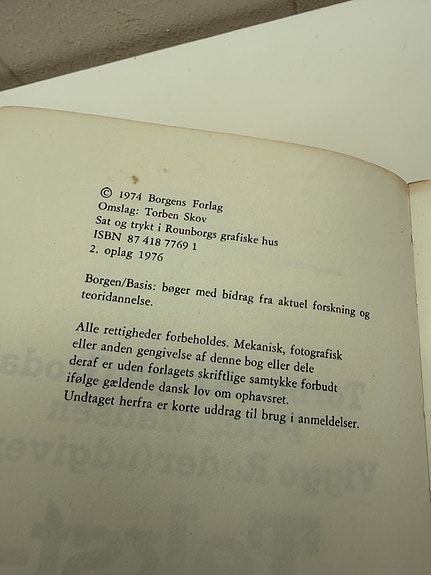 © 1974 Borgens Forlag
Omslag: Torben Skov
Sat og trykt i Rounborgs grafiske hus
ISBN 87 418 7769 1
2. oplag 1976
Borgen/Basis: bøger med bidrag fra aktuel forskning og
teoridannelse.
Alle rettigheder forbeholdes. Mekanisk, fotografisk
eller anden gengivelse af denne bog eller dele
deraf er uden forlagets skriftlige samtykke forbudt
ifølge gældende dansk lov om ophavsret.
Undtaget herfra er korte uddrag til brug i anmeldelser.